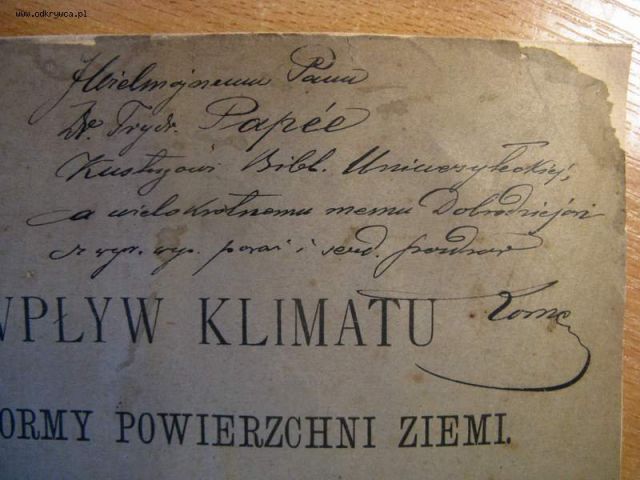 www.odkrywca.pl
JWielmożnemu Panu
Dr. Fryd. Papée
Kustoszowi Bibl. Uniwersyteckiej,
a wielokrotnemu memu Dobrodziejowi
z wyr. wys. pow. i serd. pozdrow
WPŁYW KLIMATU
ORMY POWIERZCHNI ZIEMI.